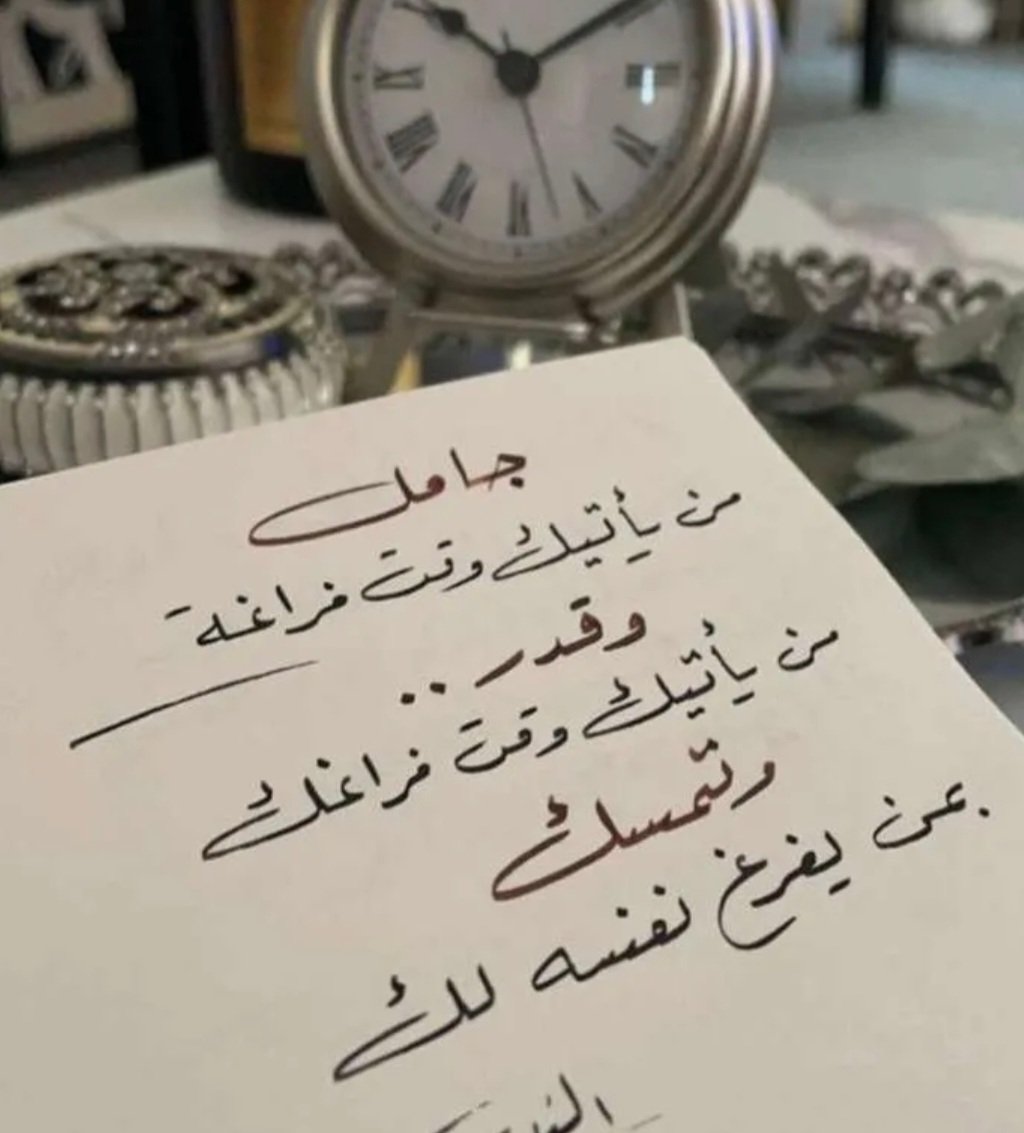 جامل
من يأتيك وقت فراغة
وقدر ..
من يأتيك وقت فراغك
وتمسك
بمن يفرغ نفسه لك